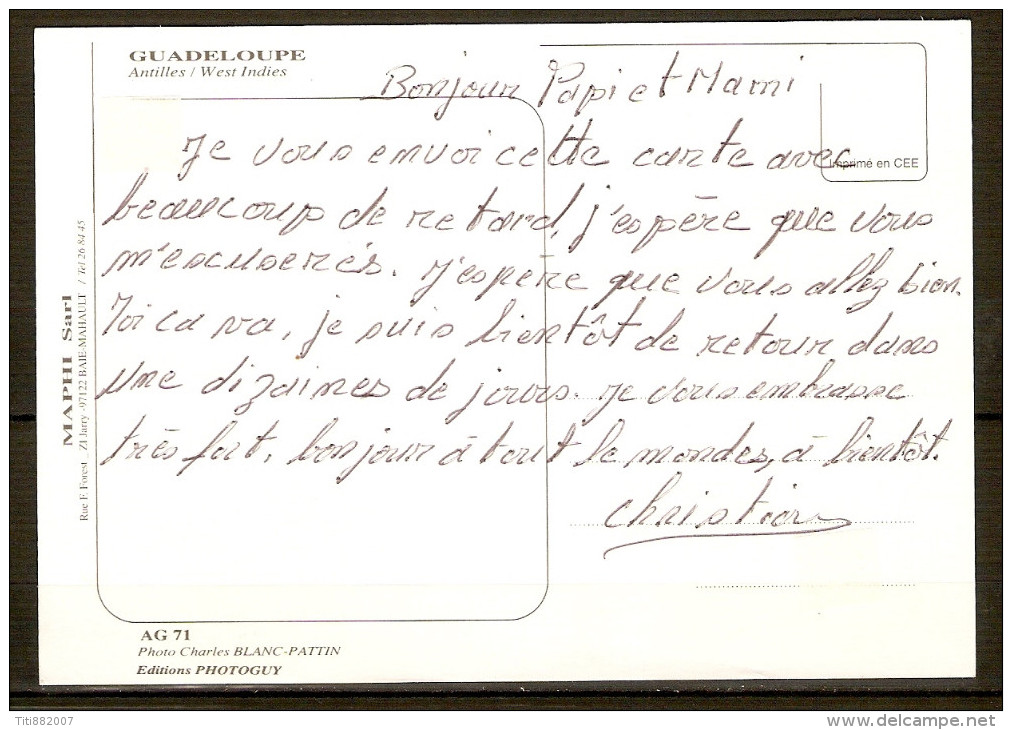 GUADELOUPE
Antilles / West Indies
Bonjour Papi et Mami
Je vous envoi cette carte avec
Imprimé en CEE
beaucoup de retard, j'espère que vous
m'escuserés. J'espère que vous allez bien.
Moi ca va, je suis bientôt de retour dans
une dizaines de jours. Je vous embrasse
très fort, bonjour à tout le mondes, à bientôt.
Christian
MAPHI Sarl
Rue F. Forest _ ZI Jarry - 97122 BAIE-MAHAULT / Tel 26 84 45
AG 71
Photo Charles BLANC-PATTIN
Editions PHOTOGUY
Titi882007
delcampe.net